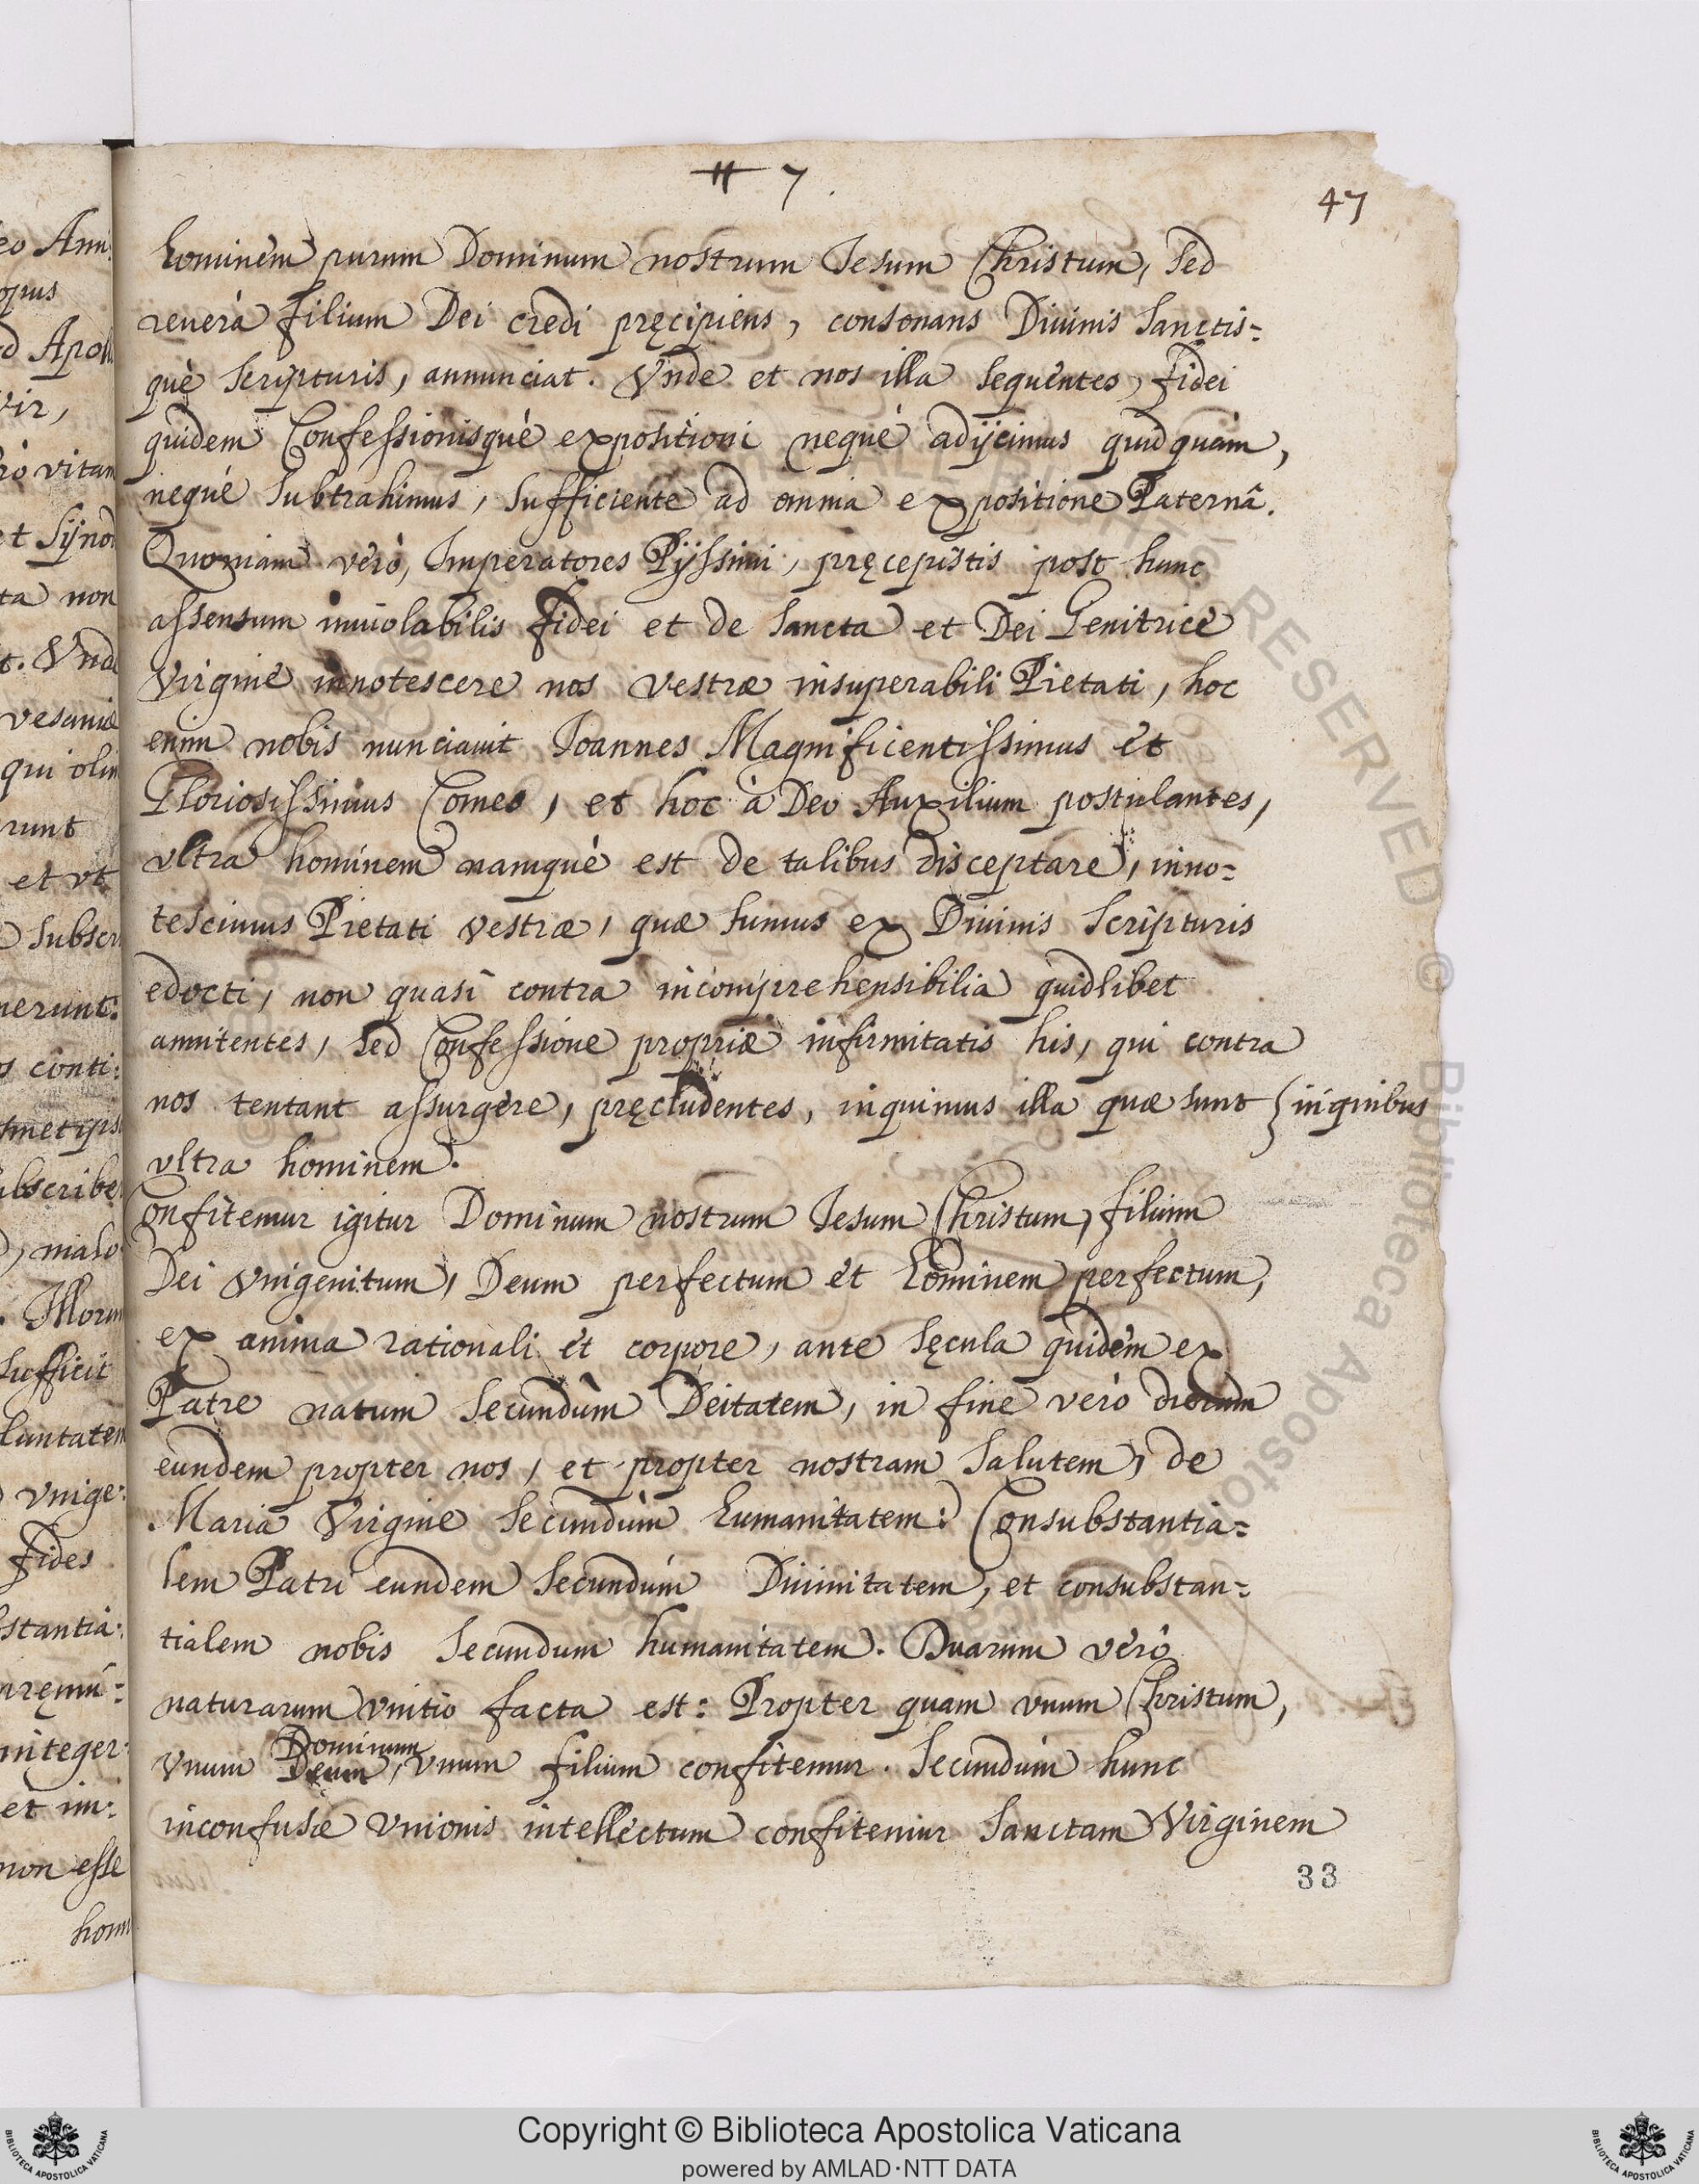 # 7.
47
hominem purum Dominum nostrum Iesum Christum, sed
reuerà filium Dei credi pręcipiens, consonans Diuinis Sanctis=
què scripturis, annunciat. Vnde et nos illa sequentes, fidei
quidem Confessionisquè expositioni nequè adijcimus quidquàm,
nequè subtrahimus, sufficiente ad omnia expositione Paternâ.
Quoniam verò, Imperatores Pijssimi, pręcepistis post hunc
assensum inuiolabilis fidei et de Sancta et Dei Genitrice
Virgine innotescere nos vestræ insuperabili Pietati, hoc
enim nobis nunciauit Ioannes Magnificentissimus et
Gloriosissimus Comes, et hoc à Deo Auxilium postulantes,
vltra hominem namquè est de talibus disceptare, inno=
tescimus Pietati vestræ, quæ sumus ex Diuinis Scripturis
edocti, non quasi contra incomprehensibilia quidlibet
annitentes, sed Confessione propriæ infirmitatis his, qui contra
nos tentant assurgere, pręcludentes, inquimus illa quæ sunt
vltra hominem.
Confitemur igitur Dominum nostrum Iesum Christum, filium
Dei vnigenitum, Deum perfectum et hominem perfectum,
ex anima rationali et corpore, ante sęcula quidem ex
Patre natum secundùm Deitatem, in fine verò dierum
eundem propter nos, et propter nostram salutem, de
Maria Virgine secundùm humanitatem: Consubstantia=
lem Patri eundem secundùm Diuinitatem, et consubstan=
tialem nobis secundum humanitatem. Duarum verò
naturarum vnitio facta est: Propter quam vnum Christum,
Dominum
vnum Deum, vnum filium confitemur. Secundùm hunc
inconfusæ vnionis intellectum confitemur Sanctam Virginem
33
Copyright © Biblioteca Apostolica Vaticana
powered by AMLAD·NTT DATA